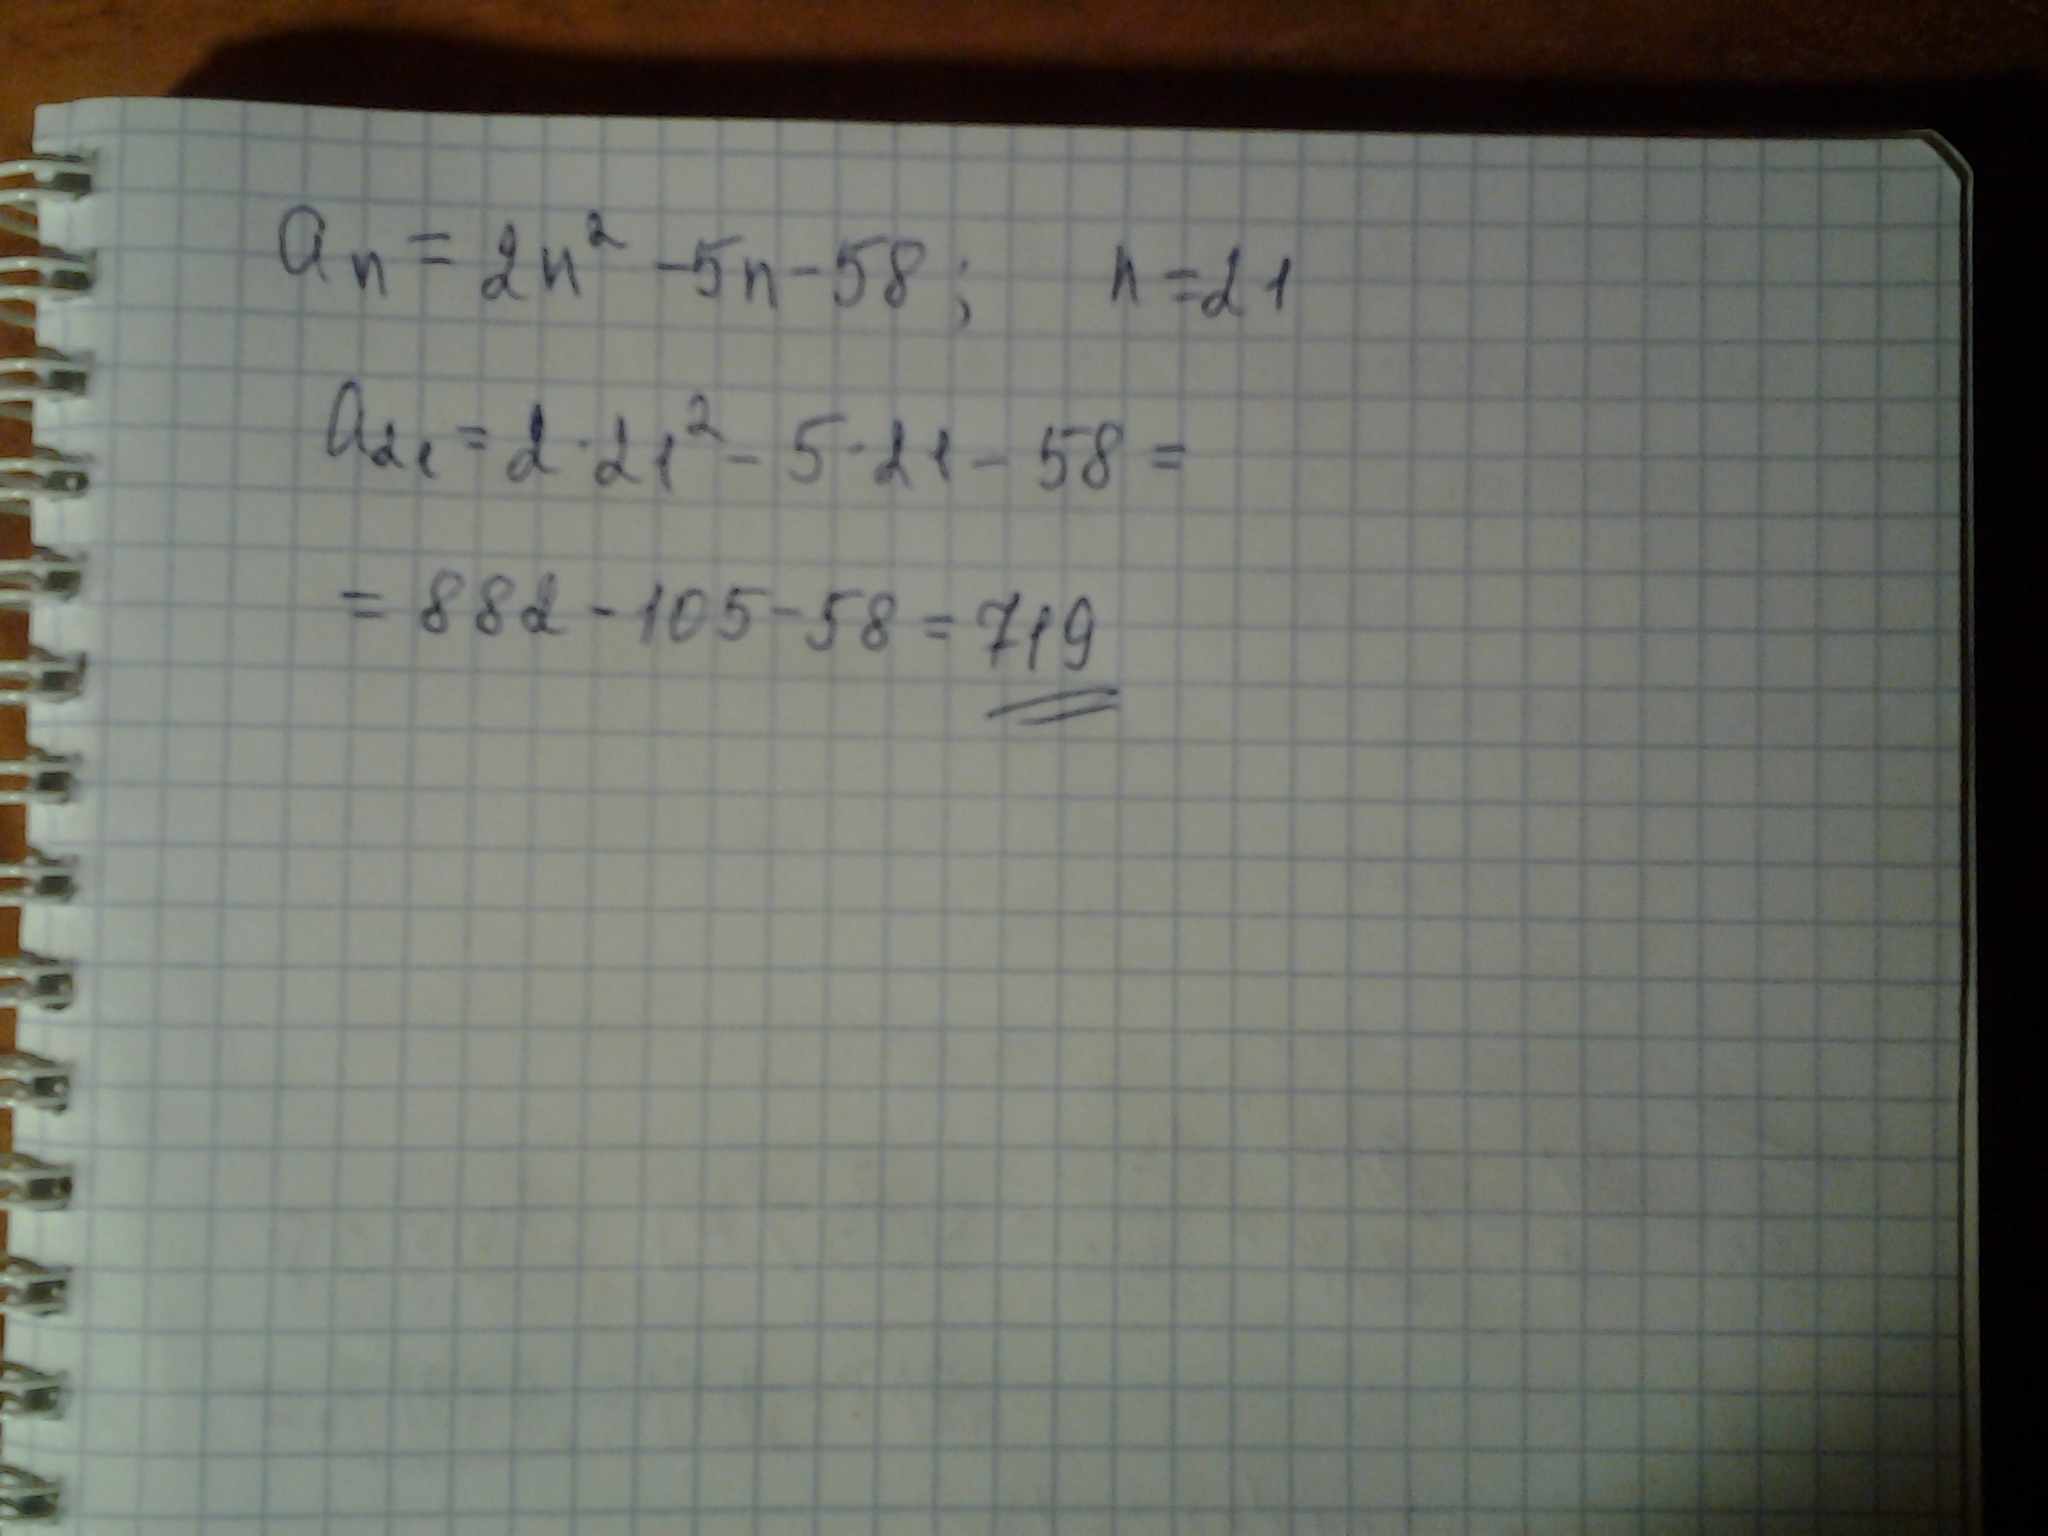 aₙ = 2n² - 5n - 58; n = 21
a₂₁ = 2 · 21² - 5 · 21 - 58 =
= 882 - 105 - 58 = 719